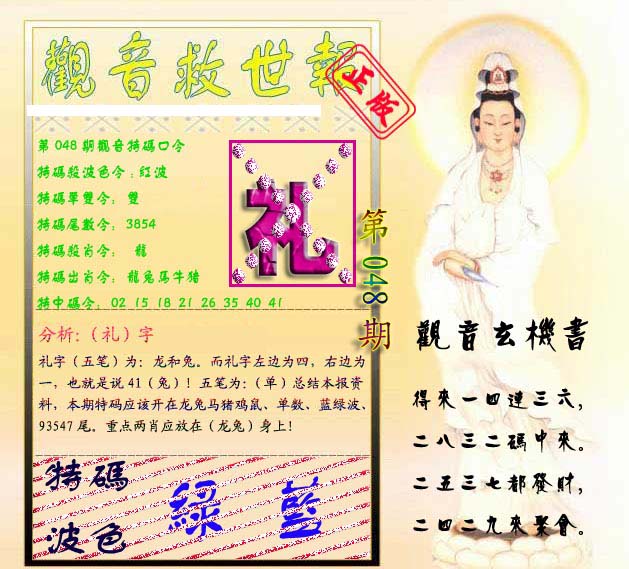 觀音救世報
正版
第 048 期觀音特碼口令
特碼殺波色令：紅波
特碼單雙令： 雙
特碼尾數令： 3854
特碼殺肖令： 龍
特碼出肖令： 龍兔馬牛猪
特中碼令： 02 15 18 21 26 35 40 41
礼
第 048 期
分析:（礼）字
礼字（五笔）为：龙和兔。而礼字左边为四，右边为
一，也就是说 41（兔）！五笔为：（单）总结本报资
料，本期特码应该开在龙兔马猪鸡鼠、单数、蓝绿波、
93547 尾。重点两肖应放在（龙兔）身上！
特碼
波色
綠 藍
觀音玄機書
得來一四連三六，
二八三二碼中來。
二五三七都發財，
二四二九來聚會。